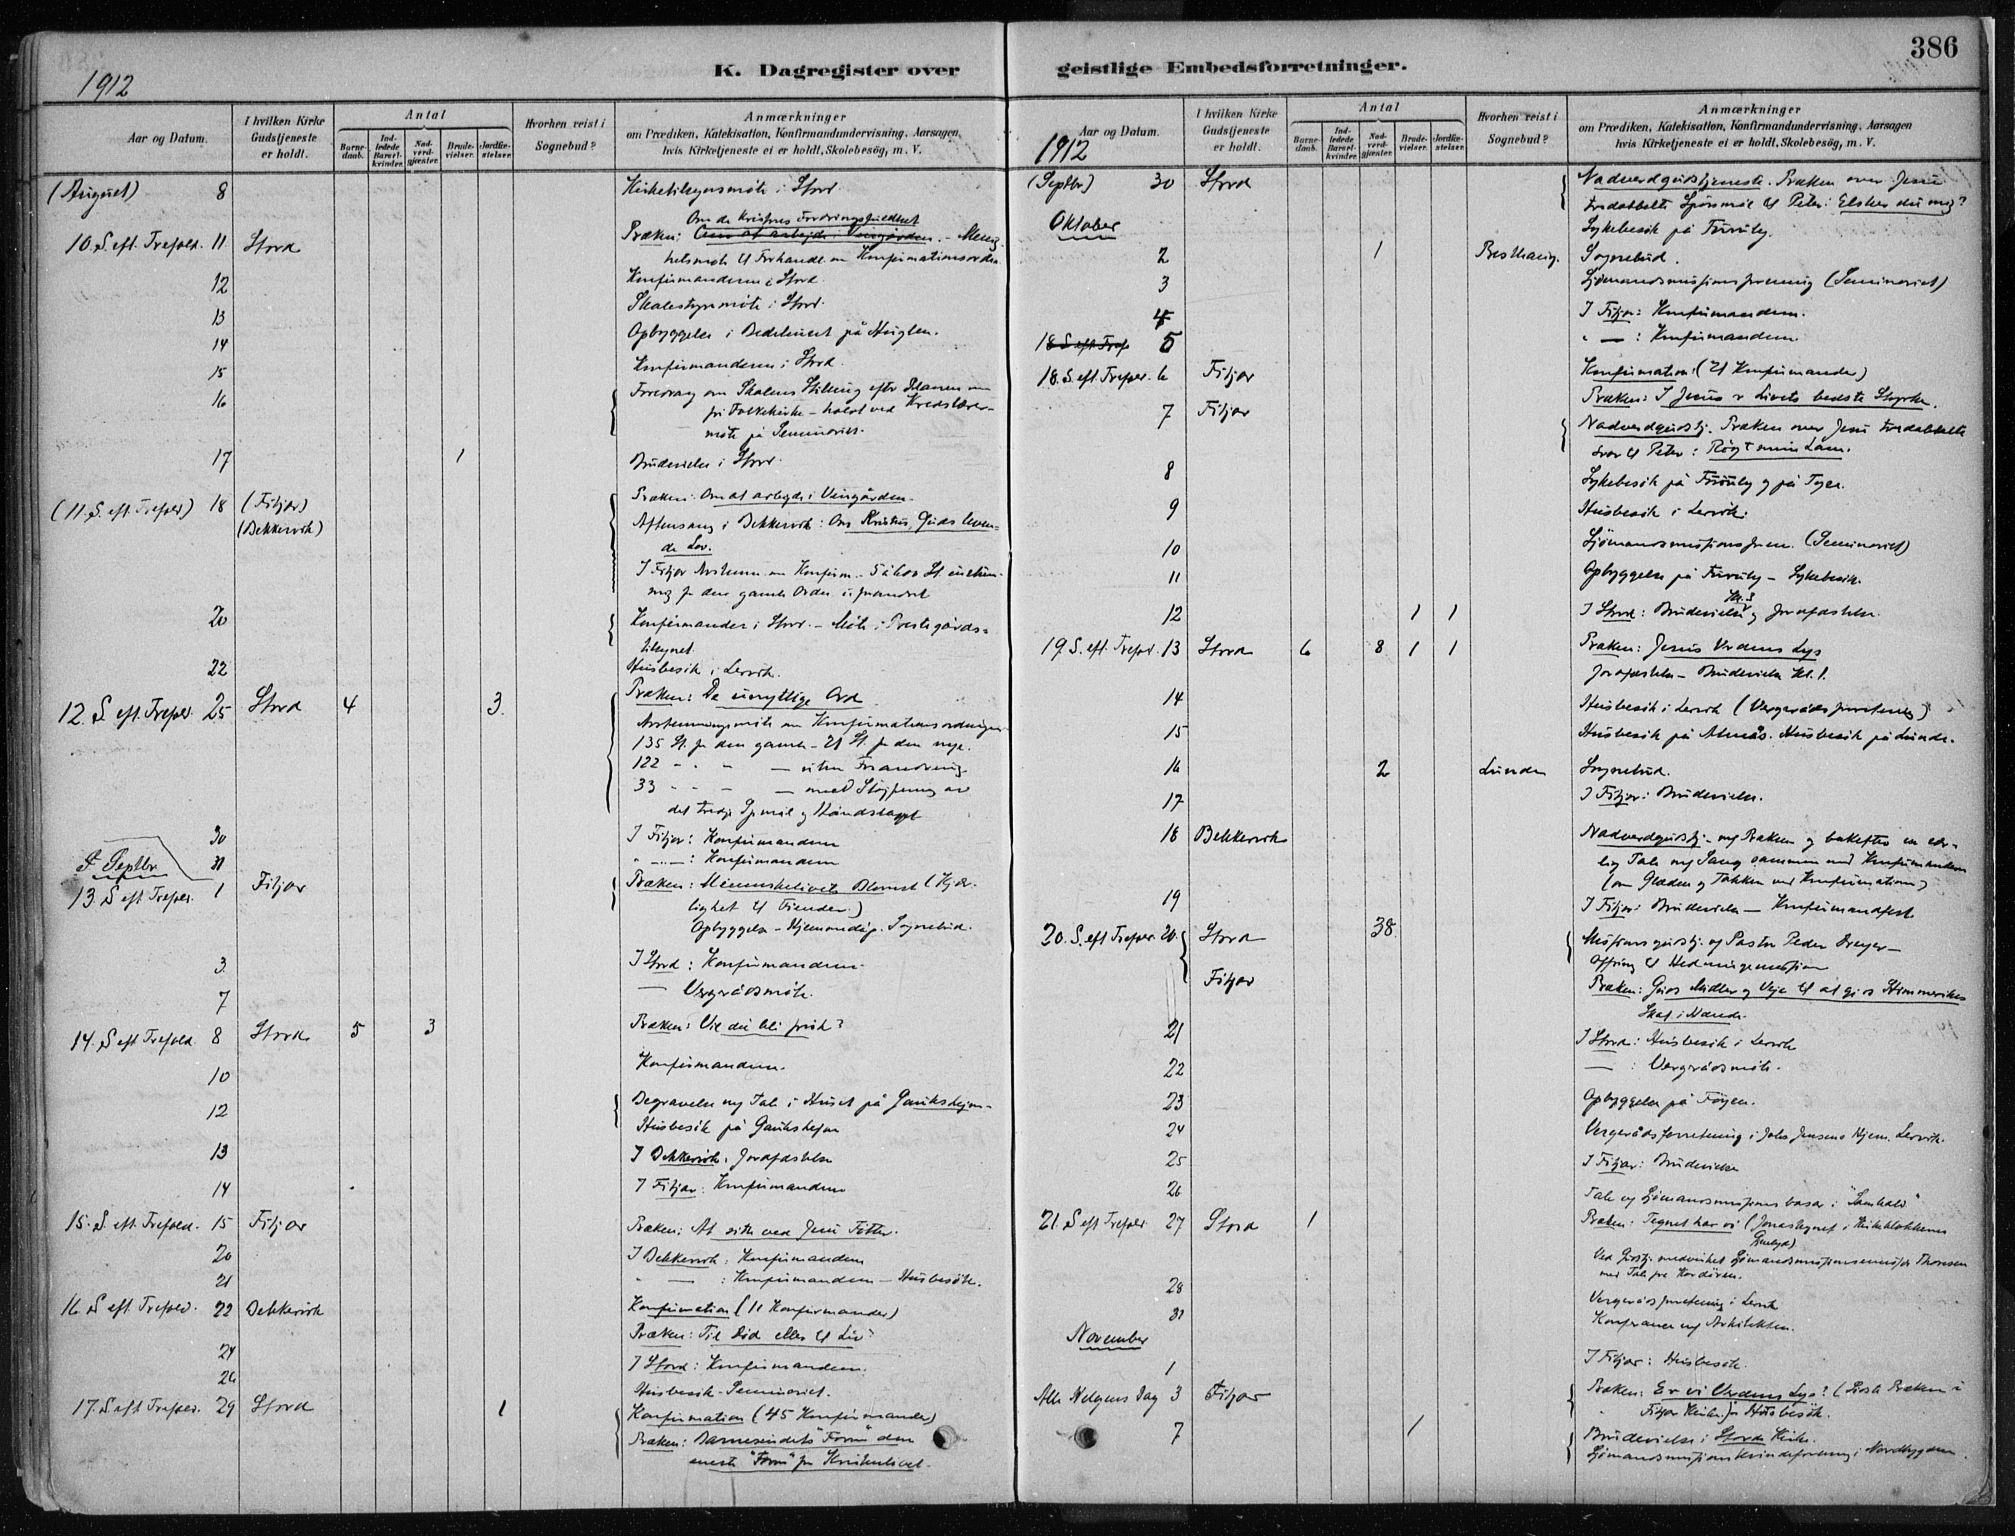 386
K. Dagregister over geistlige Embedsforretninger.
1912
Aar og Datum.
I hvilken Kirke Gudstjeneste er holdt.
Antal
Barnedaab.
Indledede Barselkvinder.
Nadverdgjæster.
Brudevielser.
Jordfæstelser.
Hvorhen reist i Sognebud?
Anmærkninger
om Prædiken, Katekisation, Konfirmandundervisning, Aarsagen,
hvis Kirketjeneste ei er holdt, Skolebesøg, m. V.
(August) 8 Kirketilsynsmöte i Stord.
Om de Kristnes
10. S. eft. Trefold. 11 Stord Præken: Om at arbejde i Vingården. - Menig-
hetsmöte til Forhandl. om Konfirmationsorden
12 Konfirmanderne i Stord.
13 Skolestyrmöte i Stord.
14 Opbyggelse i Bedehuset på Huglen.
15 Konfirmanderne i Stord.
16 Foredrag om Skolens Stilling efter Planen om
fri Folkekirke - holdt ved Kredslærer-
möte på Seminariet.
17 1 Brudevielse i Stord.
(11. S. eft. Trefold) 18 (Fitjar) Præken: Om at arbejde i Vingården.
(Bekkervik) Aftensang i Bekkervik: Om Kristus, Guds leven-
de Lov.
20 Konfirmander i Stord. - Möte i Prestegårds-
tilsynet.
22 Husbesök i Lervik.
12. S. eft. Trefold. 25 Stord 4 3 Præken: De unyttige Ord
Avstemningsmöte om Konfirmationsordningen
135 St. for den gamle - 21 St. for den nye.
122 " " " - uten Forandring
33 " " " - med Slöjfning av
det tredje Spsmål og Håndslaget
30 I Fitjar: Konfirmanderne
31 " - : Konfirmanderne
Septbr
13. S eft Trefold. 1 Fitjar Præken: Menneskelivets Blomst (Kjær-
lighet til Fiender.)
Opbyggelse - Sognebud.
3 I Stord: Konfirmanderne.
7 - Vergerådsmöte.
14. S eft Trefold. 8 Stord 5 3 Præken: Vil du bli frisk?
10 Konfirmanderne.
12 Begravelse og Tale i Huset på Gaukshejm-
Husbesök på Gaukshejm
13 I Bekkervik: Jordfæstelse
14 I Fitjar: Konfirmanderne
15. S. eft. Trefold. 15 Fitjar Præken: At sitte ved Jesu Fötter.
20 I Bekkervik: Konfirmanderne
21 " - : Konfirmanderne - Husbesök.
16. S eft Trefold. 22 Bekkervik Konfirmation (11 Konfirmander)
Præken: Til Död eller til Liv?
24 I Stord: Konfirmanderne.
26 Husbesök - Seminariet.
17. S. eft Trefold. 29 Stord 1 Konfirmation (45 Konfirmander)
Præken: Barnesindets "Form" den
eneste "Form" for Kristenlivet.
1912
Aar og Datum.
I hvilken Kirke Gudstjeneste er holdt.
Antal
Barnedaab.
Indledede Barselkvinder.
Nadverdgjæster.
Brudevielser.
Jordfæstelser.
Hvorhen reist i Sognebud?
Anmærkninger
om Prædiken, Katekisation, Konfirmandundervisning, Aarsagen
hvis Kirketjeneste ei er holdt, Skolebesøg, m. V.
(Septbr) 30 Stord Nadverdgudstjeneste. Præken over Jesu
tredobbelte Spörsmål til Peter: Elsker du mig?
Oktober Sykebesök på Furuly.
2 1 Sognebud.
3 Sjömandsmissionsforening (Seminariet)
4 I Fitjar: Konfirmanderne.
18 S eft Tref. 5 " - : Konfirmanderne
18. S. eft. Trefold. 6 Fitjar Konfirmation: (21 Konfirmander)
Præken: I Jesus er Livets bedste Styrke.
7 Fitjar Nadverdgudstj. Præken over Jesu tredobbelte
Svar til Peter: Rögt mine Lam.
8 Sykebesök på Furuly og på Tyse.
9 Husbesök i Lervik.
10 Sjömandsmissionsforen. (Seminariet)
11 Opbyggelse på Furuly - Sykebesök.
12 1 1 I Stord: Brudevielse og Jordfæstelse.
19. S. eft. Trefold. 13 Stord 6 8 1 1 Præken: Jesus Verdens Lys
Jordfæstelse - Brudevielse Kl. 1.
14 Husbesök i Lervik (Vergerådsforretning)
15 Husbesök på Almås. Husbesök på Lunde.
16 2 Lunden Sognebud.
17 I Fitjar: Brudevielse.
18 Bekkervik Nadverdgudstj. og Præken og bakefter en sær-
lig Tale og Sang sammen med Konfirmanderne
(om Glæden og Takken ved Konfirmationen)
19 I Fitjar: Brudevielse - Konfirmandfest
20. S. eft Trefold. 20 Stord 38 Missionsgudstj. og Pastor Peder Dreyer -
Offring til Hedningemissionen
Fitjar Præken: Guds Midler og Veje til at gi os Himmerikes
Skat i Nåde.
21 I Stord: Husbesök i Lervik
22 - : Vergerådsmöte.
23 Opbyggelse på Föyen.
24 Vergerådsforretning i Johs Jensens Hjem. Lervik.
25 I Fitjar: Brudevielse
26 Tale og Sjömandsmissions basar i "Samhold"
21. S eft Trefold. 27 Stord 1 Præken: Tegnet har vi (Jonastegnet i
Ved Gudstj. medvirket Sjömandsmissionsemissær Thoresen
med Tale fra Kordören.
28 Vergerådsforretning i Lervik
31 Konferance og Arkitekten.
November
1 I Fitjar: Husbesök.
Alle Helgens Dag 3 Fitjar Præken: Er vi Verdens Lys? (Siste Præken i
Fitjar Kirke.) Husbesök.
7 1 Brudevielse i Stords Kirke.
Sjömandsmissions Kvindeforening i Nordbygden.